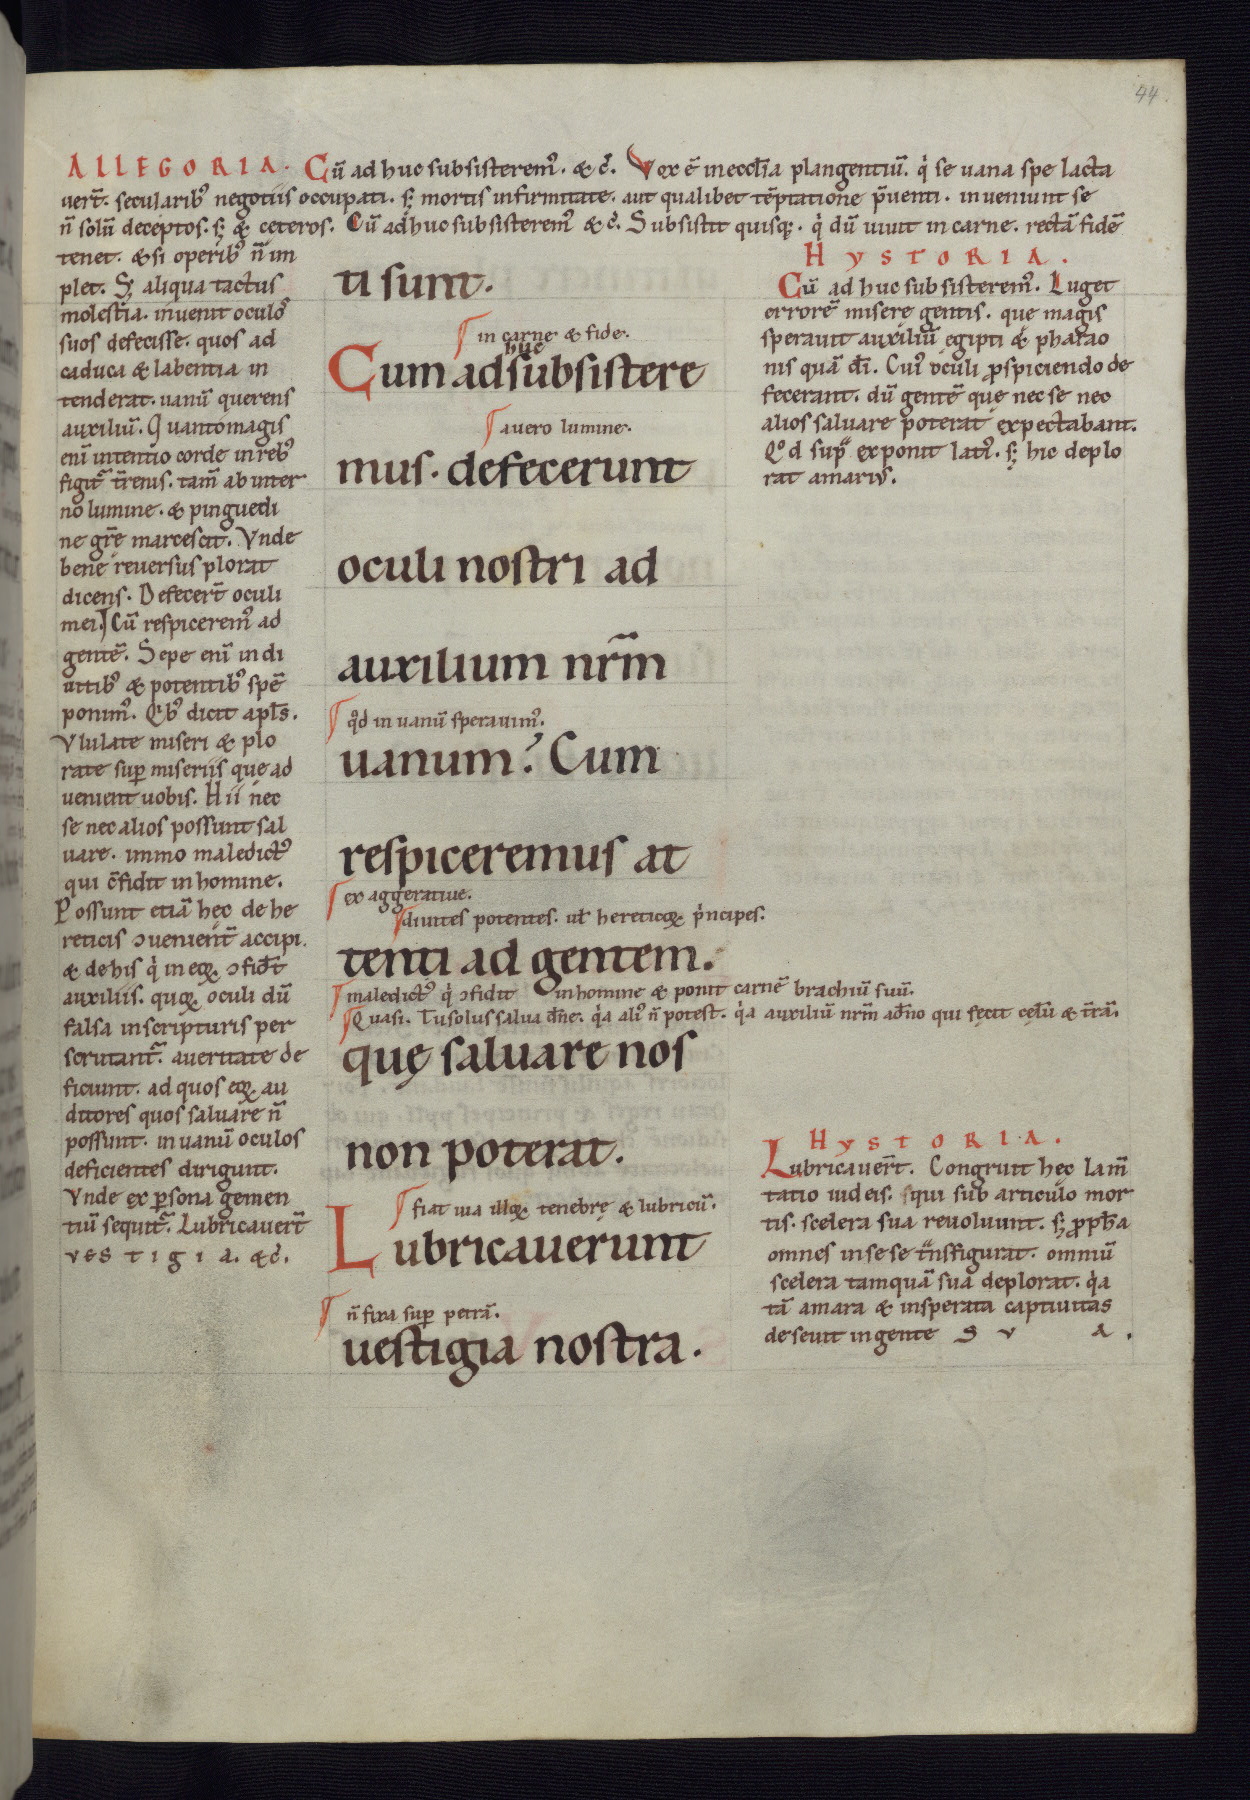 44.
ALLEGORIA. Cū ad huc subsisterem᾿. & c̄. Vox ē in eccl̄ia plangentiū. q̇ se uana spe lacta
uer̄t. secularib᾿ negotiis occupati. s; mortis infirmitate. aut qualibet tēptatione p̄uenti. inueniunt se
n̄ solū deceptos. s; & ceteros. Cū adhuc subsisterem᾿ & c̄. Subsistit quisq;. q̇ dū uiuit in carne. rectā fidē
tenet. & si operib᾿ n̄ im
plet. S; aliqua tactus
molestia. inuenit oculos
suos defecisse. quos ad
caduca & labentia in
tenderat. uanū querens
auxiliū. Quantomagis
eni intentio corde in reb᾿
figit᾿ t̄renis. tam̄ ab inter
no lumine. & pinguedi
ne gr̄e marcescit. Vnde
bene reuersus plorat
dicens. Defecer̄t oculi
mei. Cū respicerem᾿ ad
gentē. Sepe eni in di
uitib᾿ & potentib᾿ spē
ponim᾿. Qb᾿ dicit apl̄s.
Vlulate miseri & plo
rate sup miseriis que ad
uenient uobis. Hii nec
se nec alios possunt sal
uare. immo maledict᾿
qui c̄fidit in homine.
Possunt etiā hec de he
reticis ɔuenient᾿ accipi.
& de his q̇ in eoꝝ ɔfidt̄
auxiliis. quoꝝ oculi dū
falsa in scripturis per
scrutant᾿. a ueritate de
ficiunt. ad quos eoꝝ au
ditores quos saluare n̄
possunt. in uanū oculos
deficientes dirigunt.
Vnde ex psona gemen
tiū sequit᾿. Lubricauer̄t
vestigia. &c̄.
ti sunt.
in carne & fide.
huc
Cum ad subsistere
a uero lumine.
mus. defecerunt
oculi nostri ad
auxilium nr̄m
qd̄ in uanū sperauim᾿.
uanum? Cum
respiceremus at
exaggeratiue.
diuites potentes. ul̄ hereticoꝝ ṗncipes.
tenti ad gentem.
maledict᾿ q̇ ɔfidit in homine & ponit carnē brachiū suū.
Quasi. Tu solus salua dn̄e. q̇a ali᾿ n̄ potest. q̇a auxiliū nr̄m a dn̄o qui fecit cęlū & t̄rā.
quę saluare nos
non poterat.
fiat uia illoꝝ tenebrę & lubricū.
Lubricauerunt
n̄ fixa sup petrā.
uestigia nostra.
HYSTORIA.
Cū ad huc subsisterem᾿. Luget
errorē misere gentis. que magis
sperauit auxiliū egipti & pharao
nis quā dī. Cui᾿ oculi pspiciendo de
fecerant. dū gentē que nec se nec
alios saluare poterat expectabant.
Qod sup᾿ exponit lati᾿. s; hic deplo
rat amari᾿.
HYSTORIA.
Lubricauer̄t. Congruit hec lam̄
tatio iudeis. qui sub articulo mor
tis. scelera sua reuoluunt. s; pph̄a
omnes in se se tn̄sfigurat. omniū
scelera tamquā sua deplorat. q̇a
tā amara & insperata captiuitas
deseuit in gente SVA.